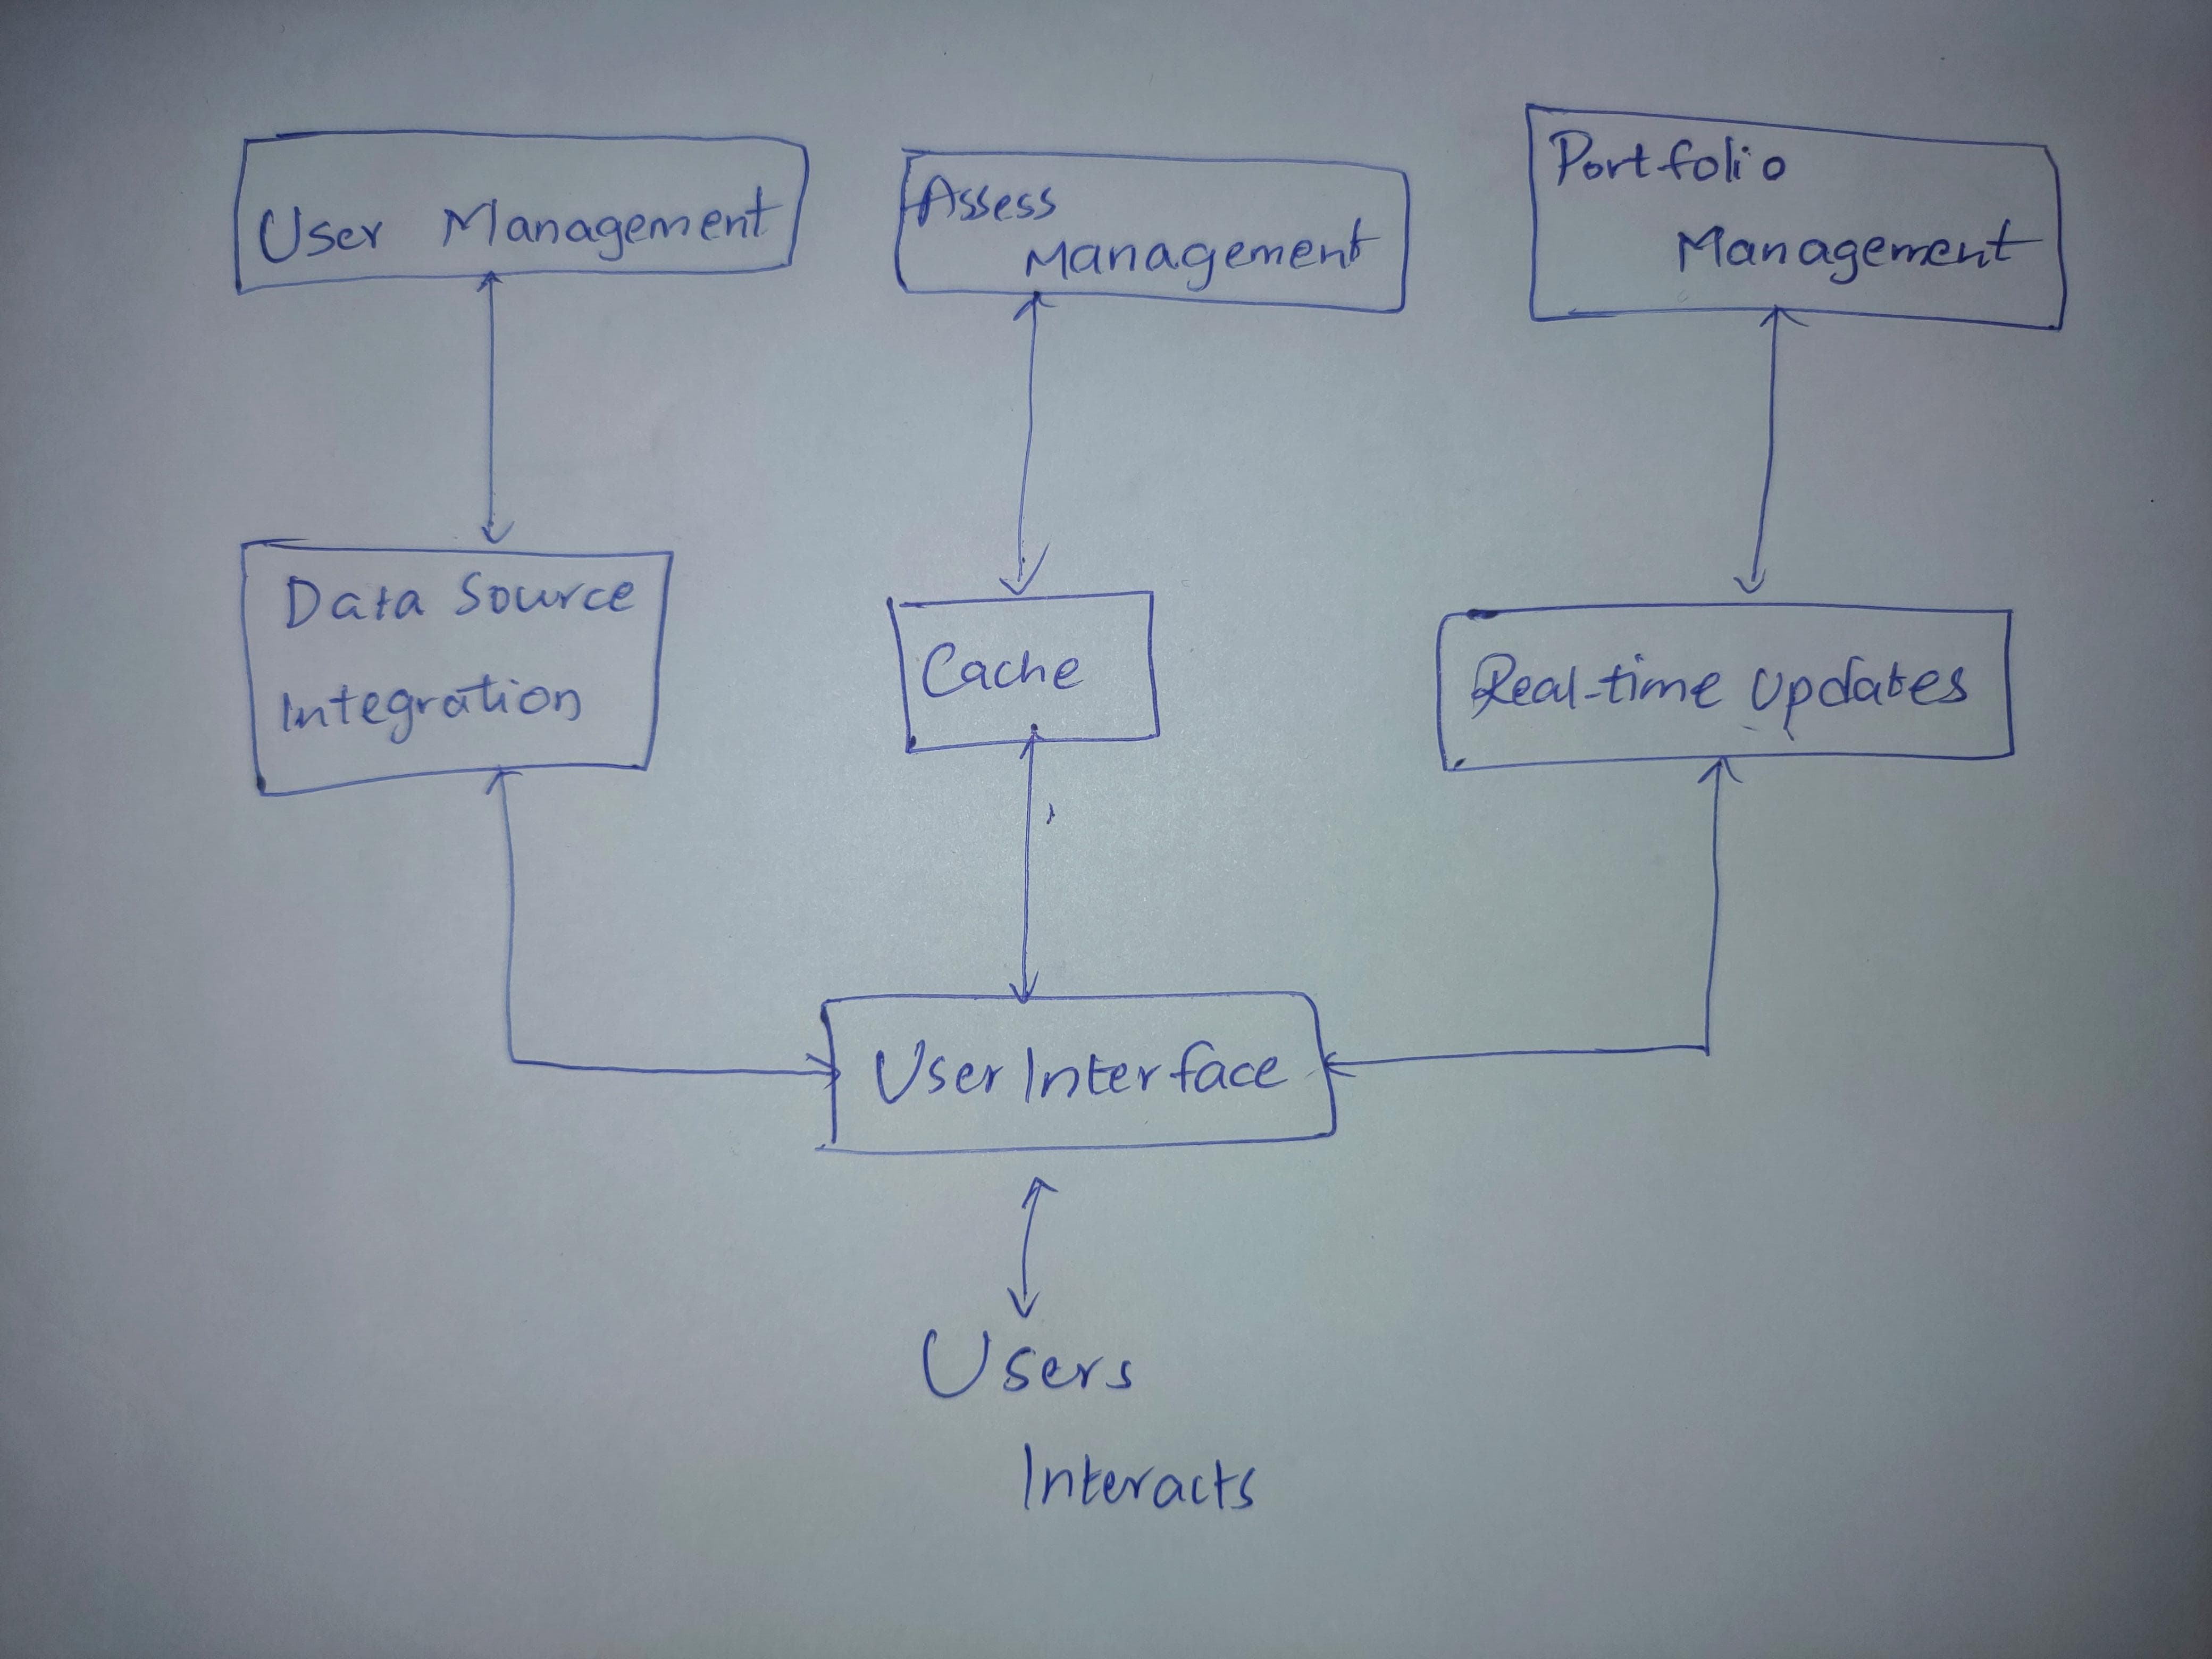 User Management
Assess
Management
Portfolio
Management
Data Source
Integration
Cache
Real-time Updates
User Interface
Users
Interacts